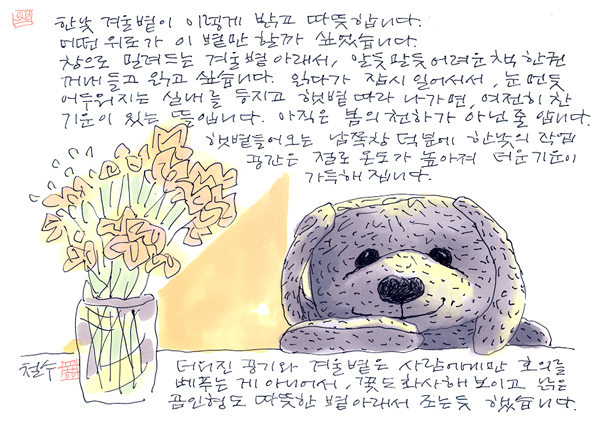 한낮 겨울볕이 이렇게 밝고 따뜻합니다.
어떤 위로가 이 볕만 할까 싶었습니다.
창으로 밀려드는 겨울볕 아래서, 알듯말듯 어려운 책 한권
꺼내들고 읽고 싶습니다. 읽다가 잠시 일어서서, 눈 먼듯
어두워지는 실내를 등지고 햇볕 따라 나가면, 여전히 찬
기운이 있는 뜰입니다. 아직은 봄의 천하가 아닌 줄 압니다.
햇볕들어오는 남쪽창 덕분에 한낮의 작업
공간은 절로 온도가 높아져 더운기운이
가득해 집니다.
철수
더워진 공기와 겨울볕은 사람에게만 호의를
베푸는 게 아니어서, 꽃도 화사해 보이고 낡은
곰인형도 따뜻한 볕 아래서 조는듯 했습니다.